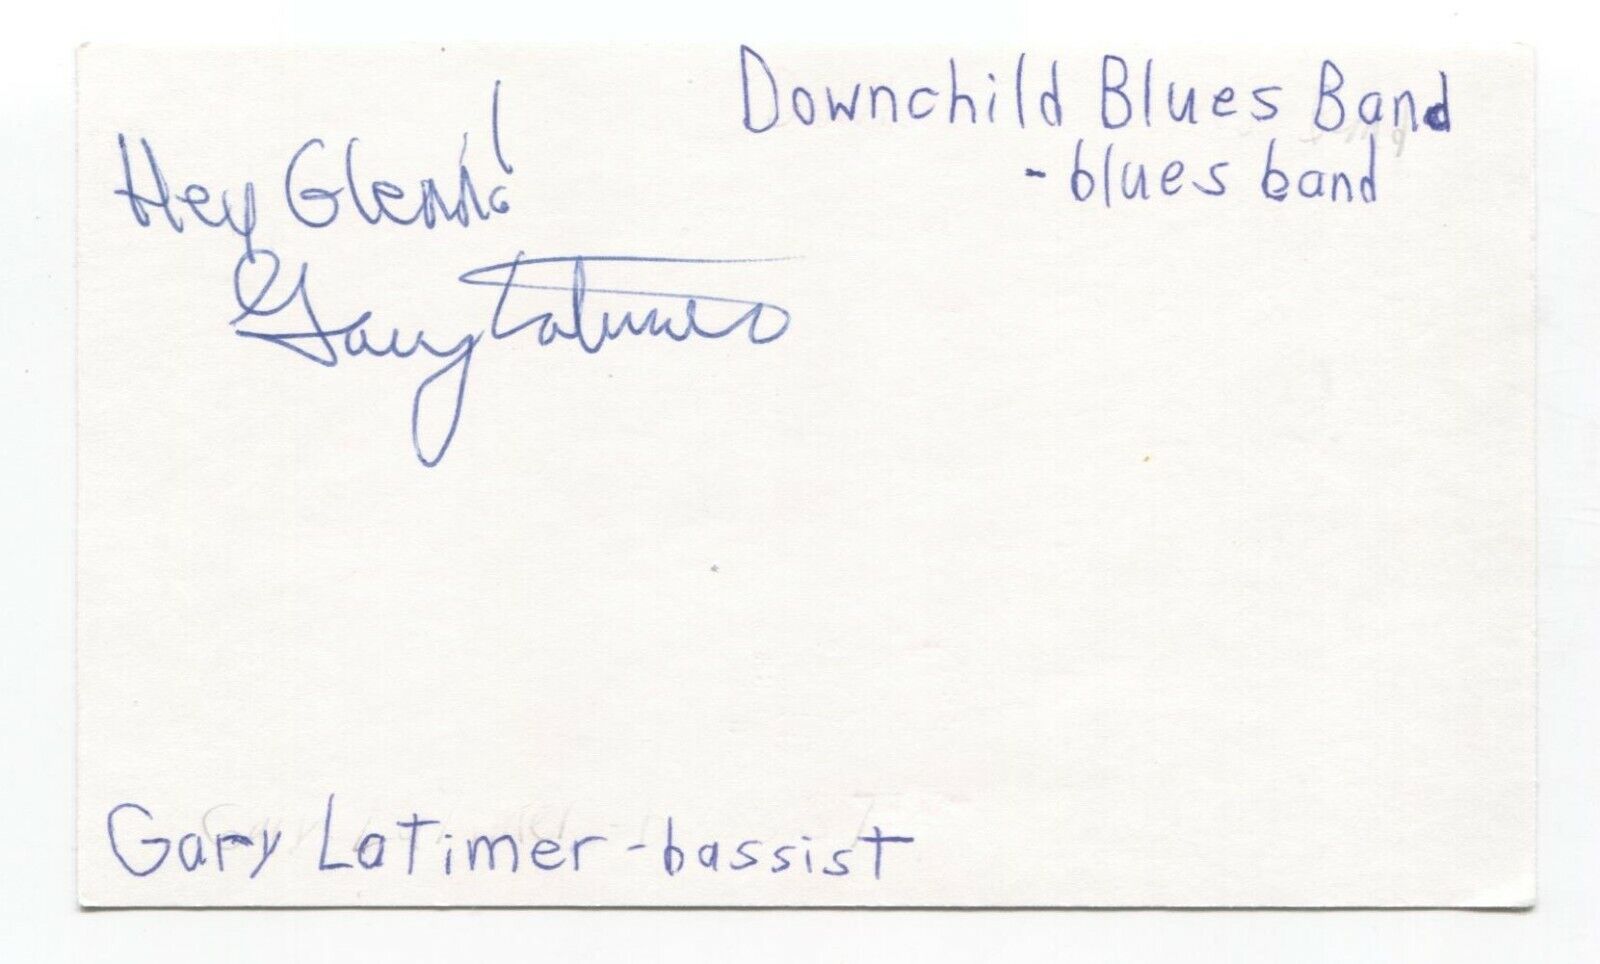 Hey Glenn!
Gary Latimer
Downchild Blues Band
- blues band
Gary Latimer - bassist